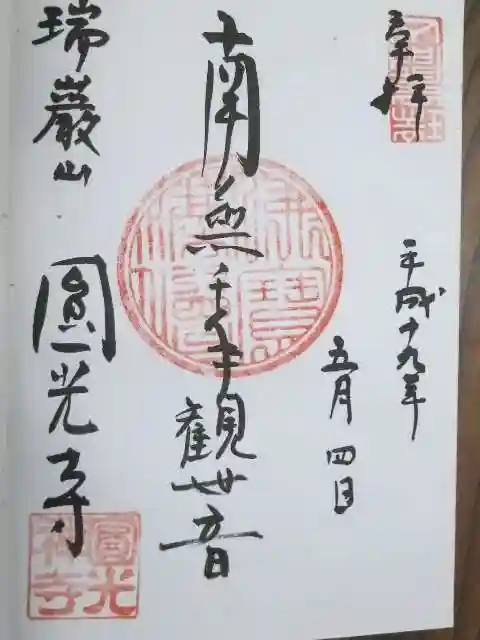 奉拝
平成十九年
五月四日
南無千手観世音
瑞巌山
圓光寺
圓光禅寺